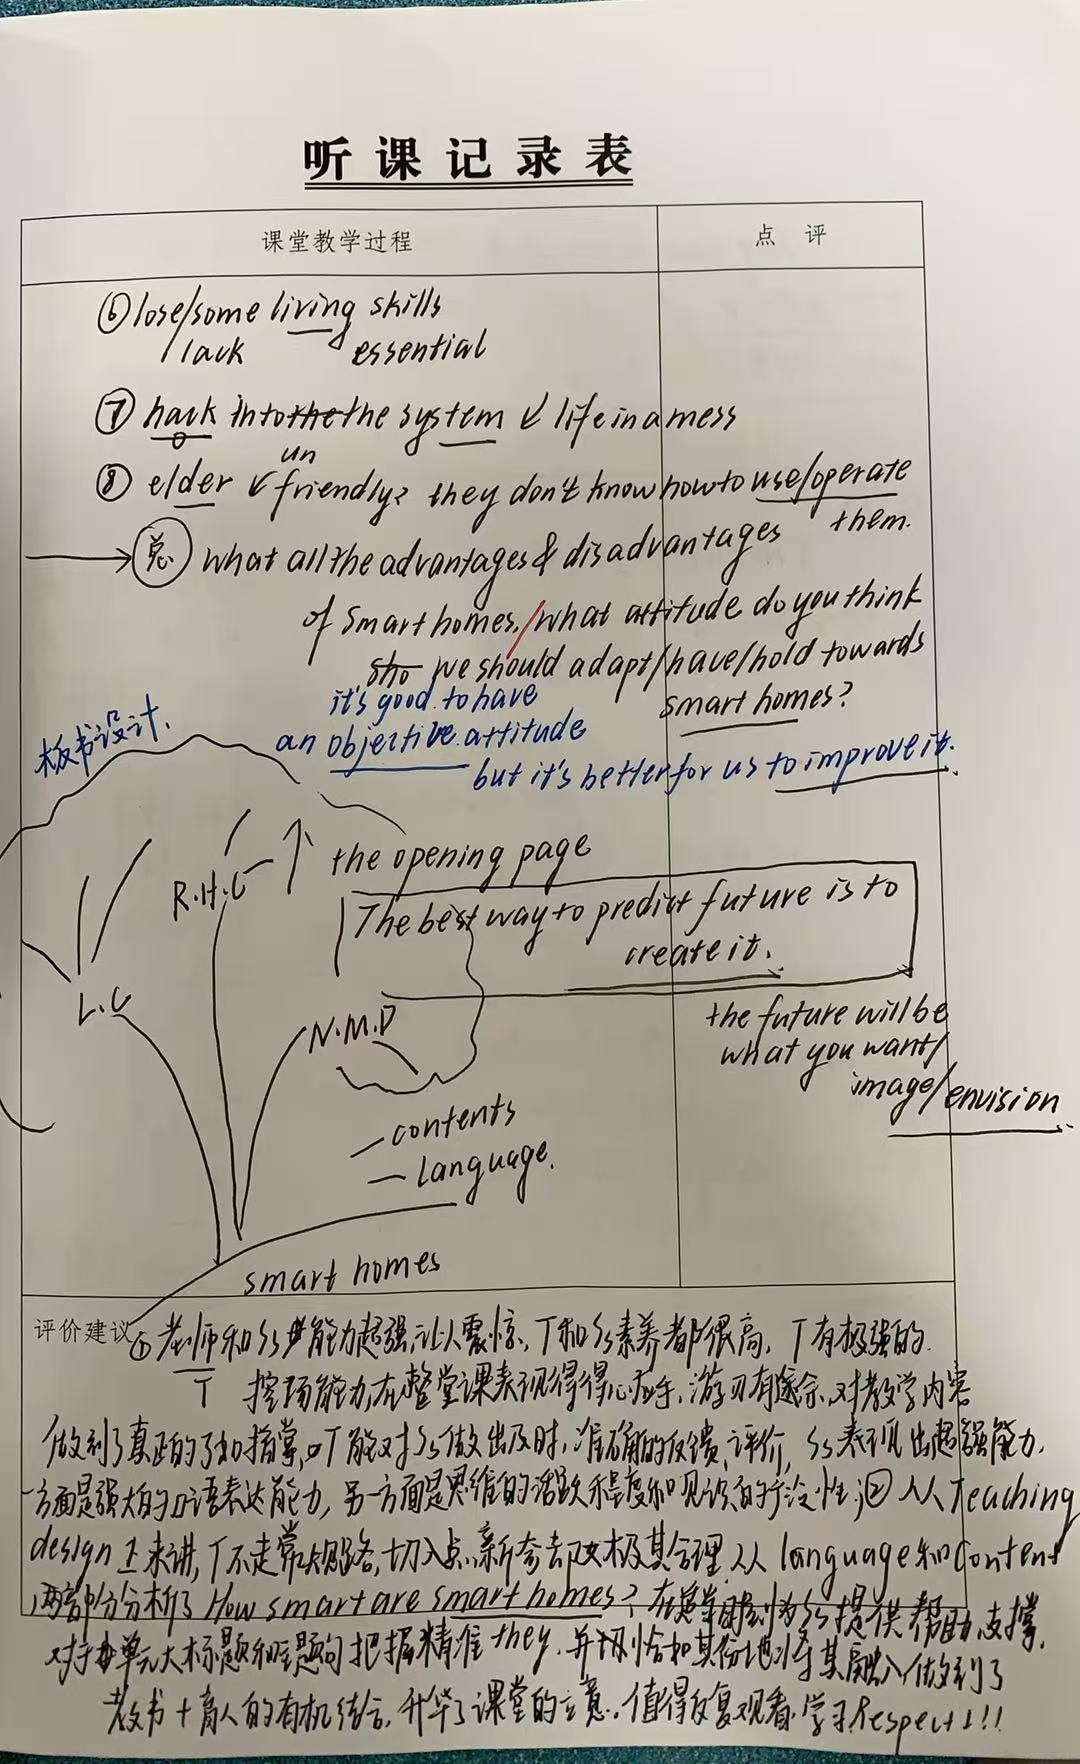 听课记录表
课堂教学过程
点 评
⑥ lose/some living skills
lack essential
⑦ hack into the the system ↙ life in a mess
un
⑧ elder ↙ friendly? they don't know how to use/operate
them.
→ 总 what all the advantages & disadvantages
of smart homes. / what attitude do you think
sho we should adapt/have/hold towards
smart homes?
it's good to have
an objective attitude
but it's better for us to improve it.
板书设计.
R.H.C ↑ the opening page
The best way to predict future is to
create it.
L.C
N.M.D
the future will be
what you want/
image/envision
— contents
— language.
smart homes
评价建议 ① 老师和Ss 能力超强,让人震惊, T和Ss素养都很高, T有极强的
T 控场能力,在整堂课表现得得心应手,游刃有余、对教学内容
做到了真正的了如指掌, T能对Ss做出及时,准确的反馈、评价, Ss表现出超强能力,
一方面是强大的口语表达能力, 另一方面是思维的活跃程度和见识的广泛性; ② 从Teaching
design上来讲, T不走常规路, 切入点新奇却又极其合理 从language和content
两部分分析了How smart are smart homes? 在 为Ss提供帮助、支撑,
对于 单元大标题和主题句把握精准 they, 并 恰如其份地将其融入 做到了
教书+育人的有机结合, 升华了课堂的立意. 值得反复观看.学习 Respect!!!